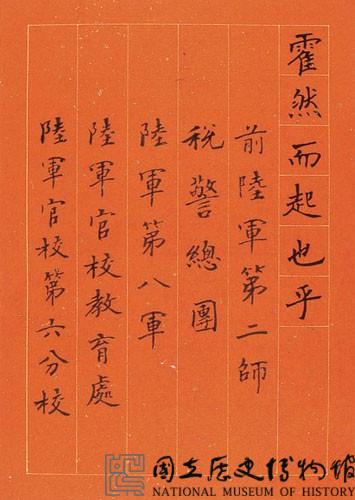 霍然而起也乎
前陸軍第二師
稅警總團
陸軍第八軍
陸軍官校教育處
陸軍官校第六分校
國立歷史博物館
NATIONAL MUSEUM OF HISTORY